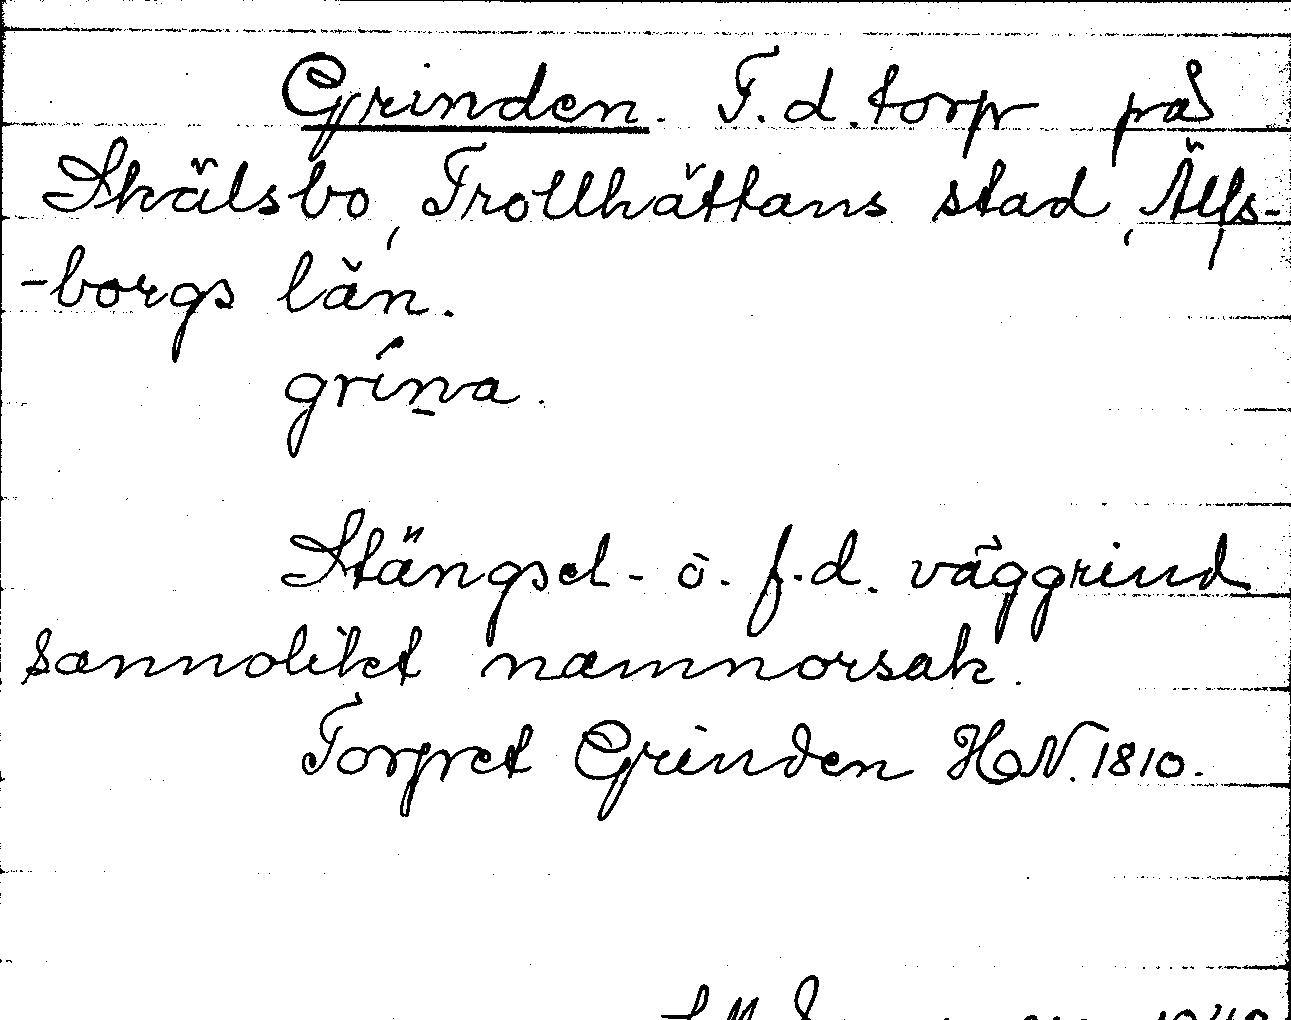 Grinden. F.d. torp på
Skälsbo, Trollhättans stad, Älfs-
-borgs län.
grín̲a.
Stängsel- o. f.d. väggrind
sannolikt namnorsak.
Torpet Grinden HN. 1810.